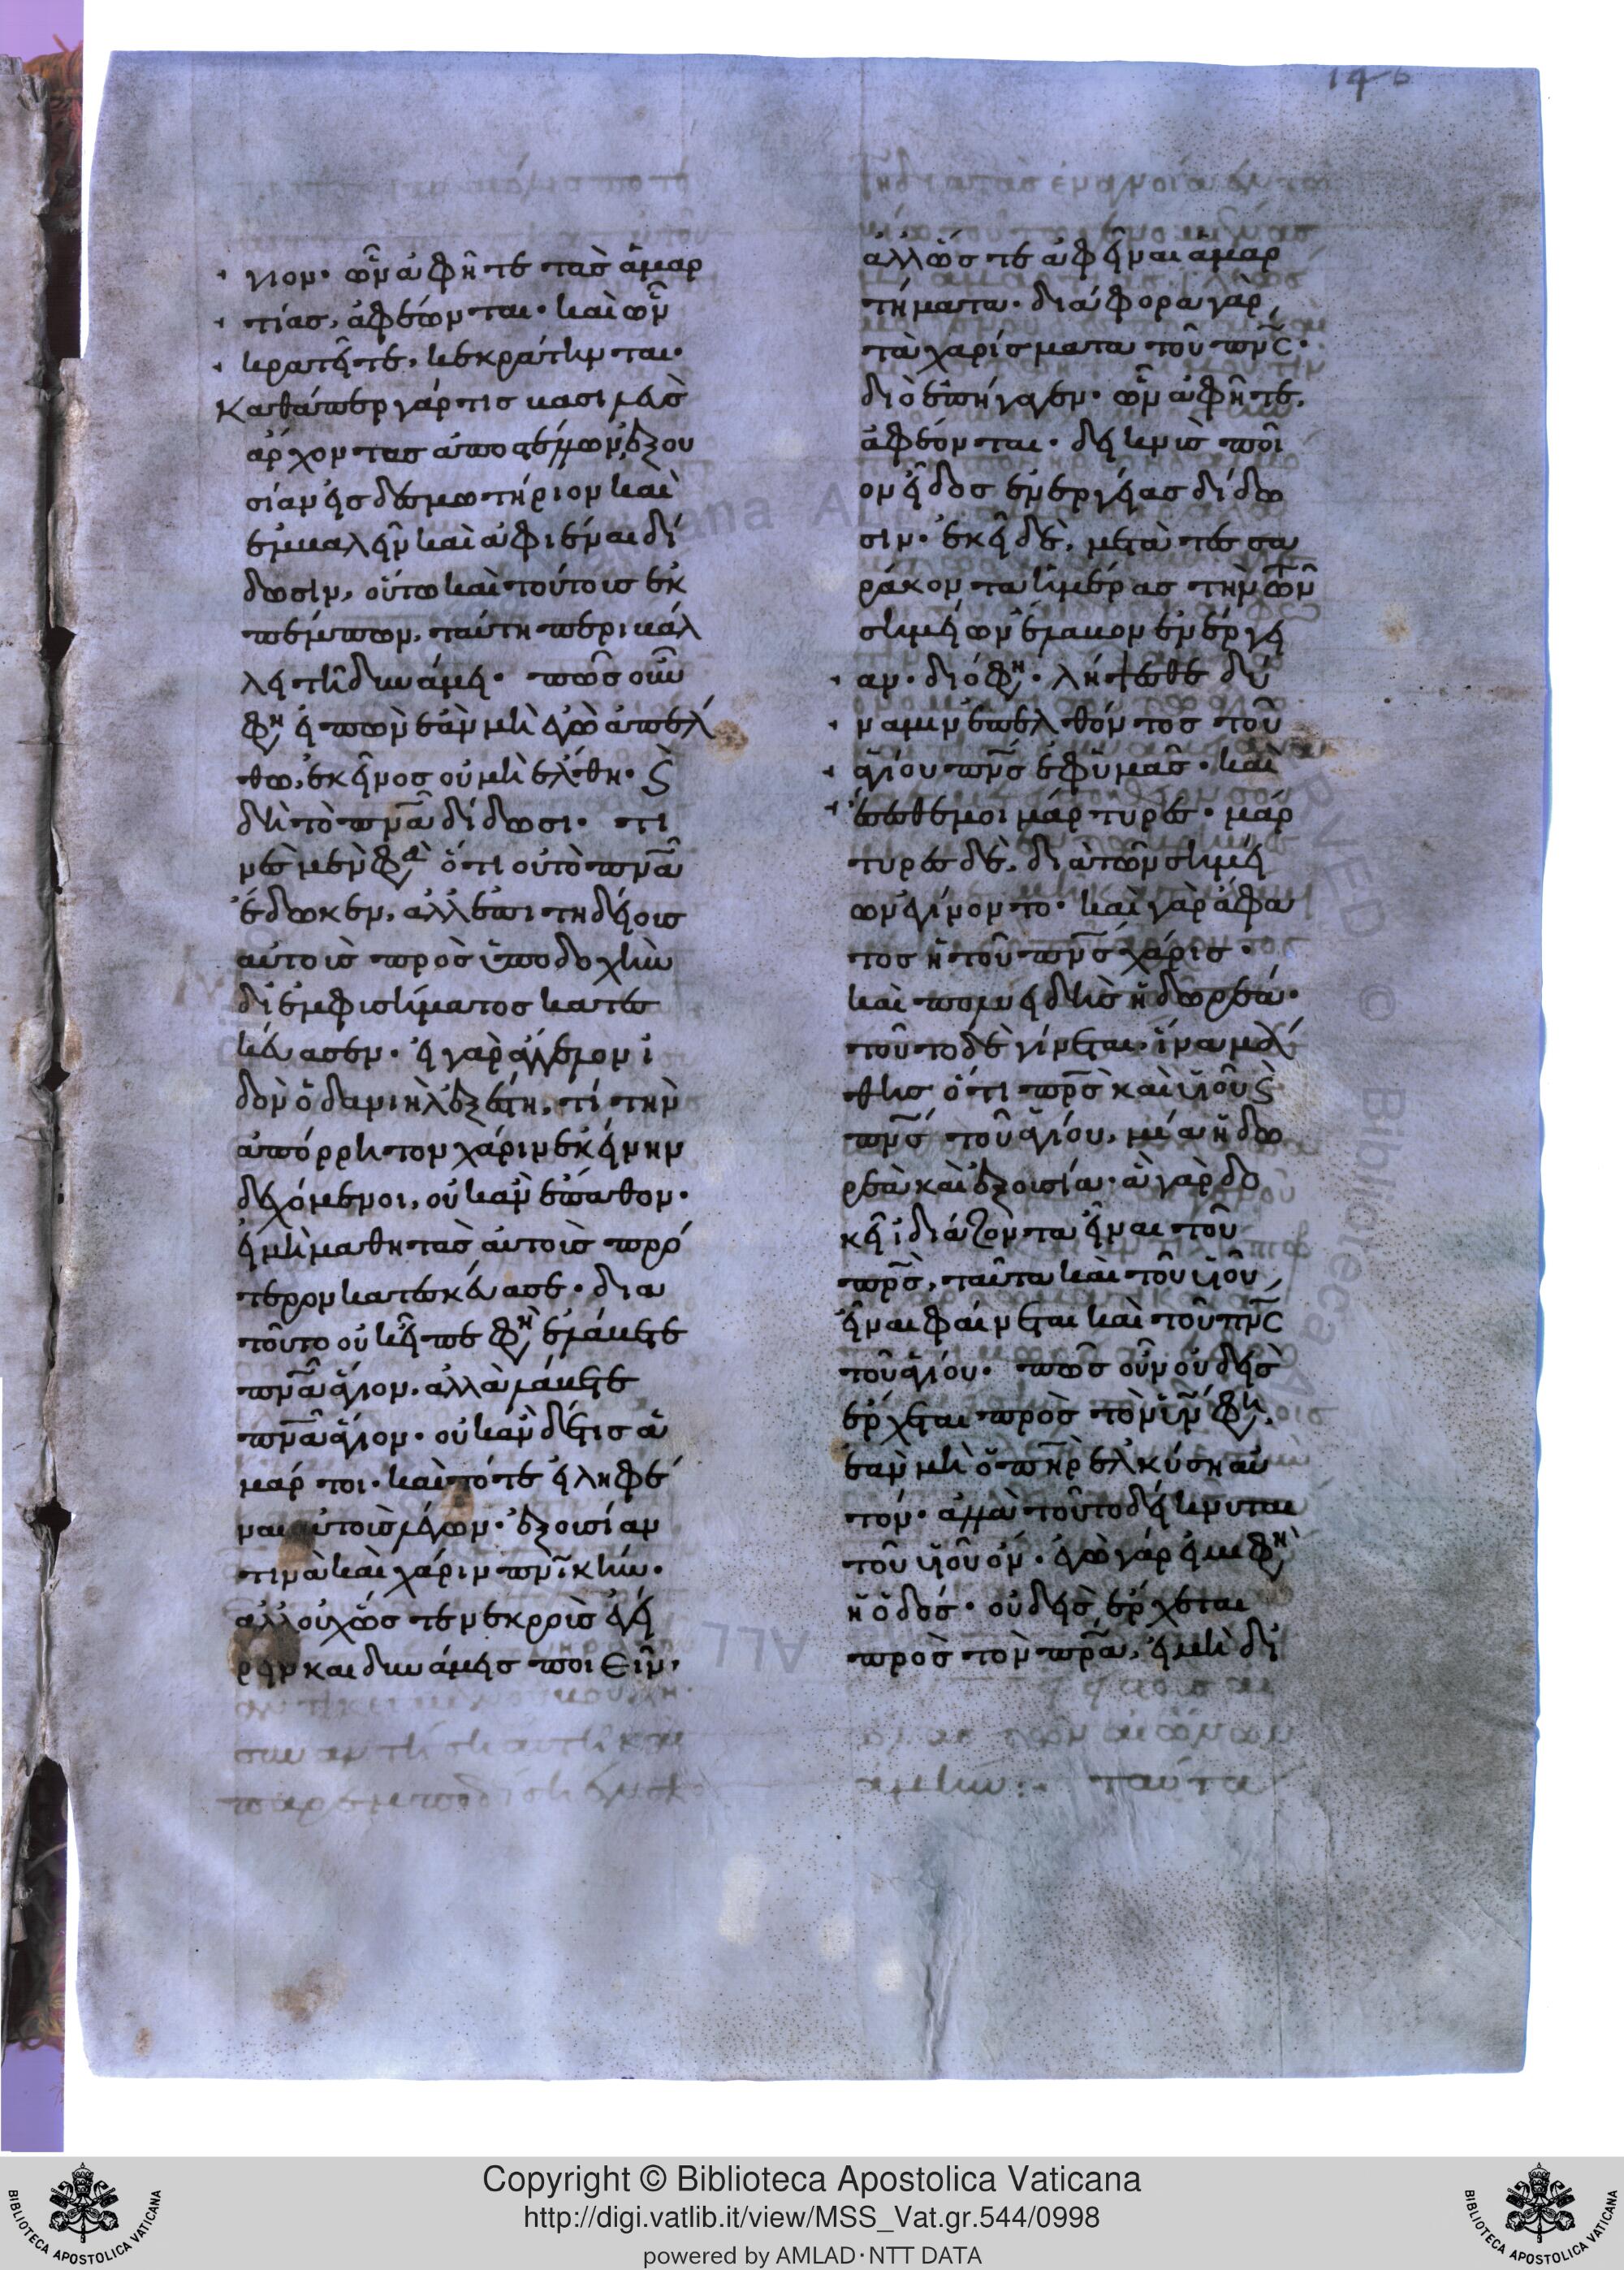 146
γιον· ὧν ἀφῆτε τὰς ἁμαρ
τίας, ἀφέωνται· καὶ ὧν
κρατῆτε, κεκράτηνται·
Καθάπερ γάρ τις βασιλεὺς
ἄρχοντας ἀποστέλλων, ἐξου
σίαν εἰς δεσμωτήριον καὶ
ἐμβαλεῖν καὶ ἀφιέναι δί
δωσιν, οὕτω καὶ τούτοις ἐκ
πέμπων, ταύτη περιβάλ
λει τῆ δυνάμει· πῶς οὖν
φη εἰπὼν ἐὰν μὴ ἐγὼ ἀπέλ
θω, ἐκεῖνος οὐ μὴ ἔλθη·
δὴ τὸ πνᾶ δίδωσι· τι
νὲς μὲν φα ὅτι οὐ τὸ πνᾶ
ἔδωκεν, ἀλλ' ἐπιτηδείους
αὐτοὺς πρὸς ὑποδοχὴν
δι' ἐμφυσήματος κατε
σκεύασεν· εἰ γὰρ ἄγγελον ἰ
δὼν ὁ δανιὴλ ἐξέστη, τί τὴν
ἀπόρρητον χάριν ἐκείνην
δεχόμενοι, οὐκ ἂν ἔπαθον·
εἰ μὴ μαθητὰς αὐτοὺς πρό
τερον κατεσκεύασε· δια
τοῦτο οὐκ εἶπε φη ἐλάβετε
πνᾶ ἅγιον, ἀλλὰ λάβετε
πνᾶ ἅγιον· οὐκ ἂν δέ τις ἁ
μάρτοι· καὶ τότε εἰληφέ
ναι αὐτοὺς λέγων· ἐξουσίαν
τινὰ καὶ χάριν πνικήν·
ἀλλ' οὐχ ὥστε νεκροὺς ἐγεί
ρειν καὶ δυνάμεις ποιεῖν,
ἀλλ' ὥστε ἀφεῖναι ἁμαρ
τήματα· διάφορα γὰρ
τὰ χαρίσματα τοῦ πνς·
διὸ ἐπήγαγεν· ὧν ἀφῆτε,
ἀφέονται· δεικνὺς ποῖ
ον εἶδος ἐνεργείας δίδω
σιν· ἐκεῖ δὲ, μετὰ τεσσα
ράκοντα ἡμέρας τὴν τῶν
σημείων ἔλαβον ἐνέργει
αν· διό φη· λήψεσθε δύ
ναμιν ἐπελθόντος τοῦ
ἁγίου πνς ἐφ' ὑμᾶς· καὶ
ἔσεσθέ μοι μάρτυρες· μάρ
τυρες δὲ, διὰ τῶν σημεί
ων ἐγίνοντο· καὶ γὰρ ἄφα
τος ἡ τοῦ πνς χάρις·
καὶ πολυειδὴς ἡ δωρεά·
τοῦτο δὲ γίνεται ἵνα μά
θης ὅτι πρς καὶ υἱοῦ
πνς τοῦ ἁγίου, μία ἡ δω
ρεὰ καὶ ἐξουσία· ἃ γὰρ δο
κεῖ ἰδιάζοντα εἶναι τοῦ
πρς, ταῦτα καὶ τοῦ υἱοῦ
εἶναι φαίνεται καὶ τοῦ πνς
τοῦ ἁγίου· πῶς οὖν οὐδεὶς
ἔρχεται πρὸς τὸν υἱόν φη,
ἐὰν μὴ ὁ πηρ ἑλκύση αὐ
τόν· ἀλλὰ τοῦτο δείκνυται
τοῦ υἱοῦ ὄν· ἐγὼ γάρ εἰμι φη
ἡ ὁδός· οὐδεὶς ἔρχεται
πρὸς τὸν πρα, εἰ μὴ δι'
Copyright © Biblioteca Apostolica Vaticana
http://digi.vatlib.it/view/MSS_Vat.gr.544/0998
powered by AMLAD·NTT DATA
BIBLIOTECA APOSTOLICA VATICANA
BIBLIOTECA APOSTOLICA VATICANA